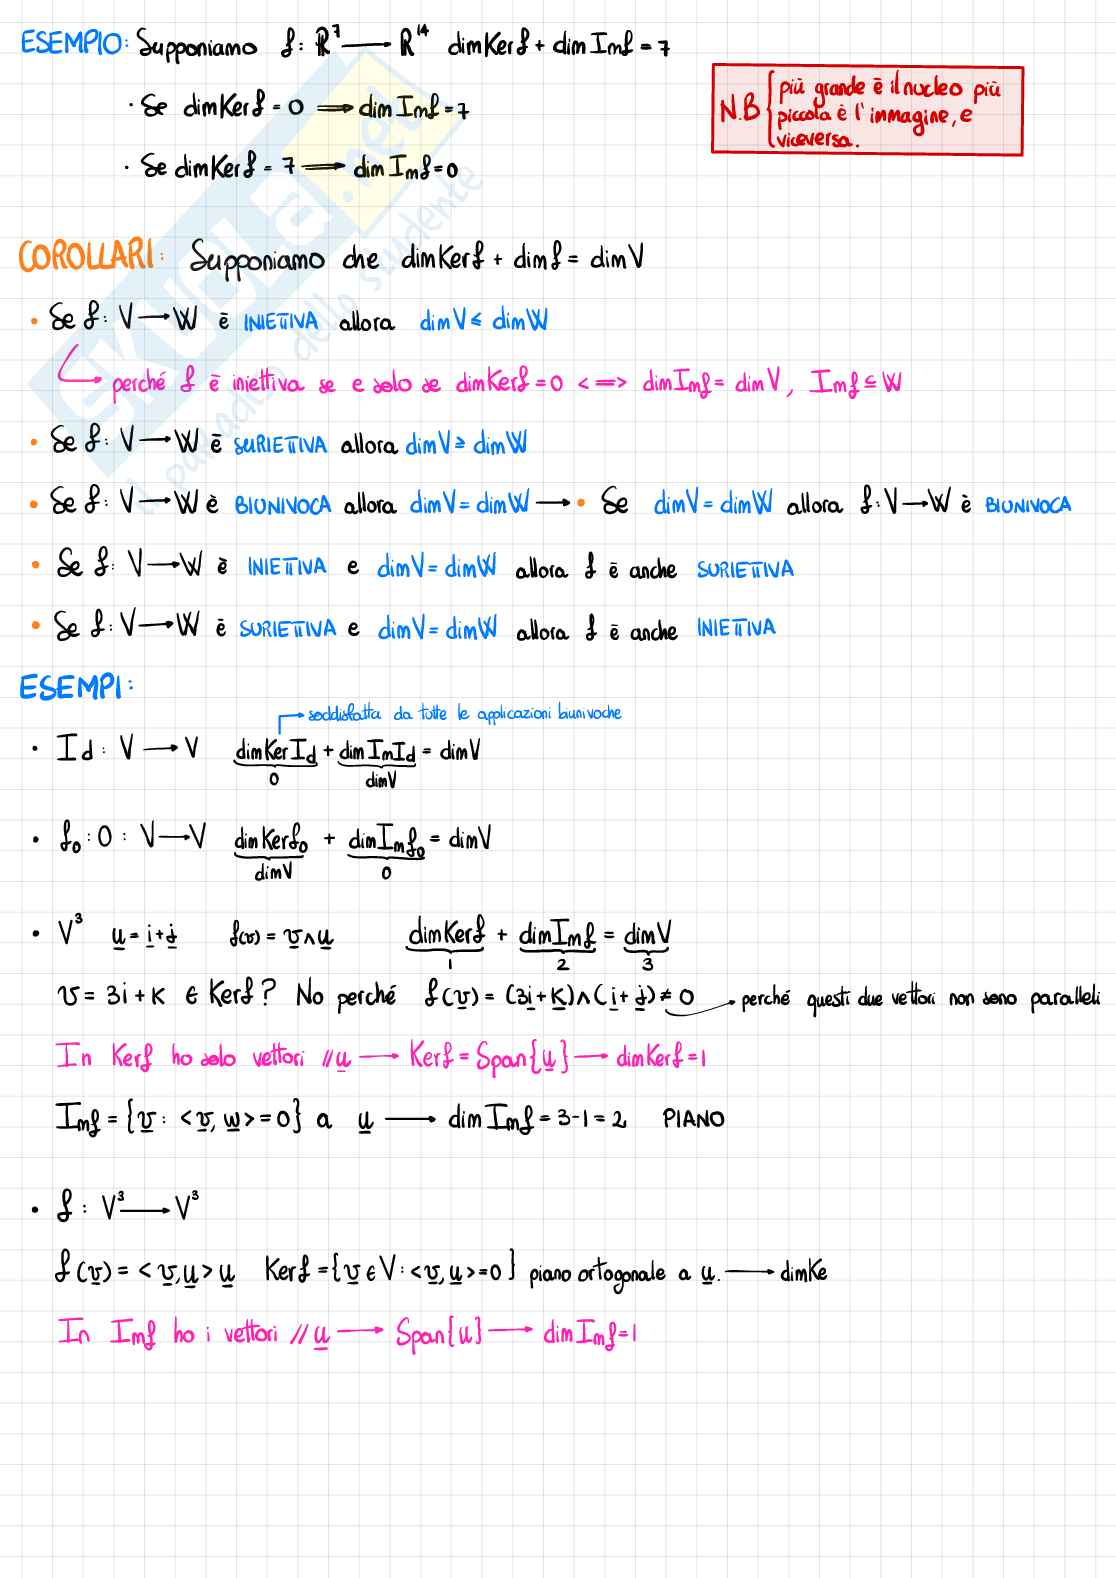 ESEMPIO: Supponiamo f: R⁷ → R¹⁴ dimKerf + dimImf = 7
· Se dimKerf = 0 ⟹ dimImf = 7
· Se dimKerf = 7 ⟶ dimImf = 0
N.B { più grande è il nucleo più
piccola è l'immagine, e
viceversa.
COROLLARI: Supponiamo che dimKerf + dimf = dimV
• Se f: V → W è INIETTIVA allora dimV ≤ dimW
perché f è iniettiva se e solo se dimKerf = 0 <=> dimImf = dimV, Imf ⊆ W
• Se f: V → W è SURIETTIVA allora dimV ≥ dimW
• Se f: V → W è BIUNIVOCA allora dimV = dimW → • Se dimV = dimW allora f: V → W è BIUNIVOCA
• Se f: V → W è INIETTIVA e dimV = dimW allora f è anche SURIETTIVA
• Se f: V → W è SURIETTIVA e dimV = dimW allora f è anche INIETTIVA
ESEMPI:
soddisfatta da tutte le applicazioni biunivoche
• Id: V → V dimKerId + dimImId = dimV
0 dimV
• f₀: 0: V → V dimKerf₀ + dimImf₀ = dimV
dimV 0
• V³ u = i + j f(v) = v ∧ u dimKerf + dimImf = dimV
1 2 3
v = 3i + k ∈ Kerf? No perché f(v) = (3i + k) ∧ (i + j) ≠ 0 → perché questi due vettori non sono paralleli
In Kerf ho solo vettori // u → Kerf = Span{u} → dimKerf = 1
Imf = {v: <v, w> = 0} a u → dimImf = 3-1 = 2 PIANO
• f: V³ → V³
f(v) = <v, u> u Kerf = {v ∈ V: <v, u> = 0} piano ortogonale a u. → dimKe
In Imf ho i vettori // u → Span{u} → dimImf = 1
SKUOLA.net
il paradiso dello studente